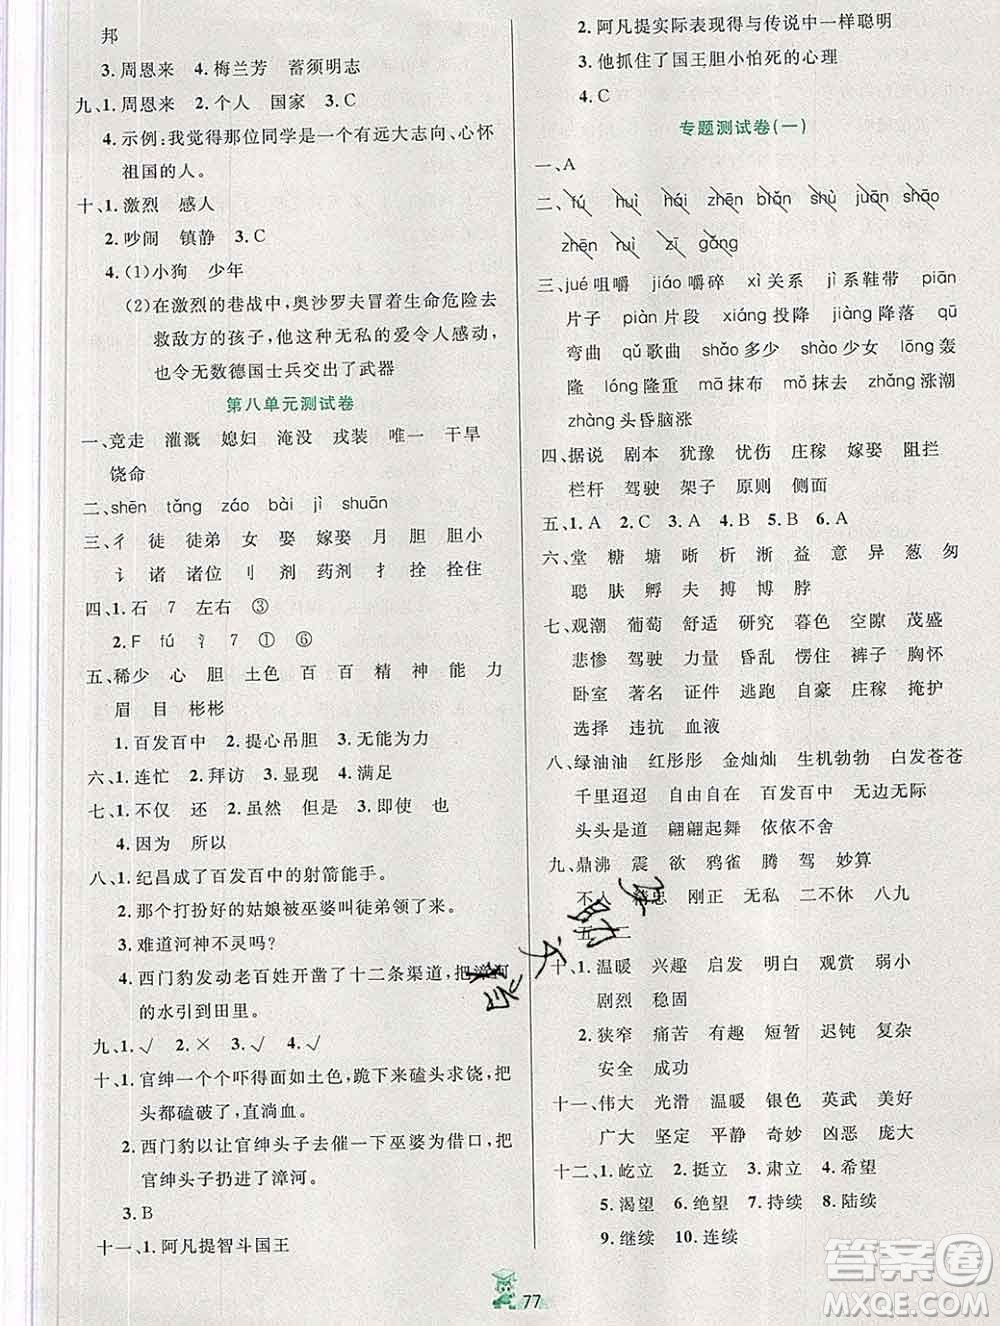 邦
3.周恩来 4.梅兰芳 蓄须明志
九、1.周恩来 2.个人 国家 3.C
4.示例:我觉得那位同学是一个有远大志向、心怀
祖国的人。
十、1.激烈 感人
2.吵闹 镇静 3.C
4.(1)小狗 少年
(2)在激烈的巷战中,奥沙罗夫冒着生命危险去
救敌方的孩子,他这种无私的爱令人感动,
也令无数德国士兵交出了武器
第八单元测试卷
一、竞走 灌溉 媳妇 淹没 戎装 唯一 干旱
饶命
二、shēn tǎng záo bài jì shuān
三、彳 徒 徒弟 女 娶 嫁娶 月 胆 胆小
讠 诸 诸位 刂 剂 药剂 扌 拴 拴住
四、1.石 7 左右 ③
2.F fú 氵 7 ① ⑥
五、稀少 心 胆 土色 百 百 精 神 能 力
眉 目 彬彬
1.百发百中 2.提心吊胆 3.无能为力
六、1.连忙 2.拜访 3.显现 4.满足
七、1.不仅 还 2.虽然 但是 3.即使 也
4.因为 所以
八、1.纪昌成了百发百中的射箭能手。
2.那个打扮好的姑娘被巫婆叫徒弟领了来。
3.难道河神不灵吗?
4.西门豹发动老百姓开凿了十二条渠道,把漳河
的水引到田里。
九、1.√ 2.× 3.√ 4.√
十、1.官绅一个个吓得面如土色,跪下来磕头求饶,把
头都磕破了,直淌血。
2.西门豹以让官绅头子去催一下巫婆为借口,把
官绅头子扔进了漳河。
3.B
十一、1.阿凡提智斗国王
2.阿凡提实际表现得与传说中一样聪明
3.他抓住了国王胆小怕死的心理
4.C
专题测试卷(一)
一、A
二、fú huì hái zhēn biǎn shù juān shāo
zhēn ruì zī gǎng
三、jué咀嚼 jiáo嚼碎 xì关系 jì系鞋带 piān
片子 piàn片段 xiáng投降 jiàng降落 qū
弯曲 qǔ歌曲 shǎo多少 shào少女 lōng轰
隆 lóng隆重 mā抹布 mǒ抹去 zhǎng涨潮
zhàng头昏脑涨
四、据说 剧本 犹豫 忧伤 庄稼 嫁娶 阻拦
栏杆 驾驶 架子 原则 侧面
五、1.A 2.C 3.A 4.B 5.B 6.A
六、堂 糖 塘 晰 析 浙 益 意 异 葱 匆
聪 肤 孵 夫 搏 博 脖
七、观潮 葡萄 舒适 研究 暮色 空隙 茂盛
悲惨 驾驶 力量 昏乱 愣住 裤子 胸怀
卧室 著名 证件 逃跑 自豪 庄稼 掩护
选择 违抗 血液
八、绿油油 红彤彤 金灿灿 生机勃勃 白发苍苍
千里迢迢 自由自在 百发百中 无边无际
头头是道 翩翩起舞 依依不舍
九、鼎沸 震 欲 鸦雀 腾 驾 妙算
不人 刚正 无私 二不休 八九
五 二
十、1.温暖 兴趣 启发 明白 观赏 弱小
剧烈 稳固
2.狭窄 痛苦 有趣 短暂 迟钝 复杂
安全 成功
十一、伟大 光滑 温暖 银色 英武 美好
广大 坚定 平静 奇妙 凶恶 庞大
十二、1.屹立 2.挺立 3.肃立 4.希望
5.渴望 6.绝望 7.持续 8.陆续
9.继续 10.连续
77
答案圈
MXQE.COM